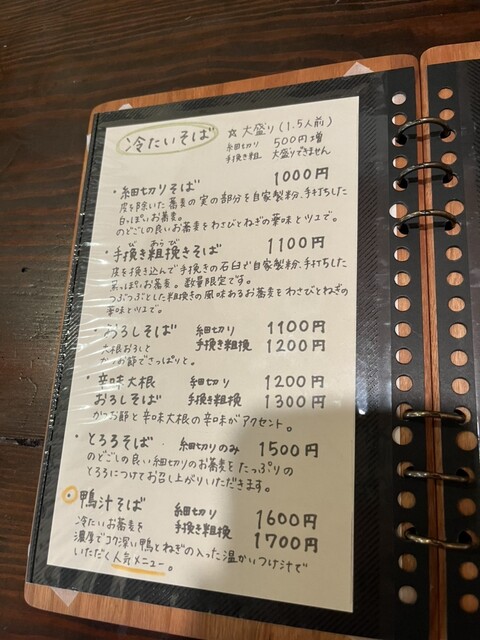 冷たいそば
☆大盛り(1.5人前)
細切り 500円増
手挽き粗 大盛りできません
・細切りそば 1000円
皮を除いた蕎麦の実の部分を自家製粉、手打ちした
白っぽいお蕎麦。
のどごしの良いお蕎麦をわさびとねぎの薬味とツユで。
・手挽き粗挽きそば 1100円
びあらび
皮を挽き込んで手挽きの石臼で自家製粉、手打ちした
黒っぽいお蕎麦。数量限定です。
つぶつぶとした粗挽きの風味あるお蕎麦をわさびとねぎの
薬味とツユで。
・おろしそば 細切り 1100円
大根おろしと 手挽き粗挽 1200円
かつお節でさっぱりと。
・辛味大根 細切り 1200円
おろしそば 手挽き粗挽 1300円
かつお節と辛味大根の辛味がアクセント。
・とろろそば 細切りのみ 1500円
のどごしの良い細切りのお蕎麦をたっぷりの
とろろにつけてお召し上がりいただきます。
・鴨汁そば 細切り 1600円
冷たいお蕎麦を 手挽き粗挽 1700円
濃厚でコク深い鴨とねぎの入った温かいつけ汁で
いただく人気メニュー。